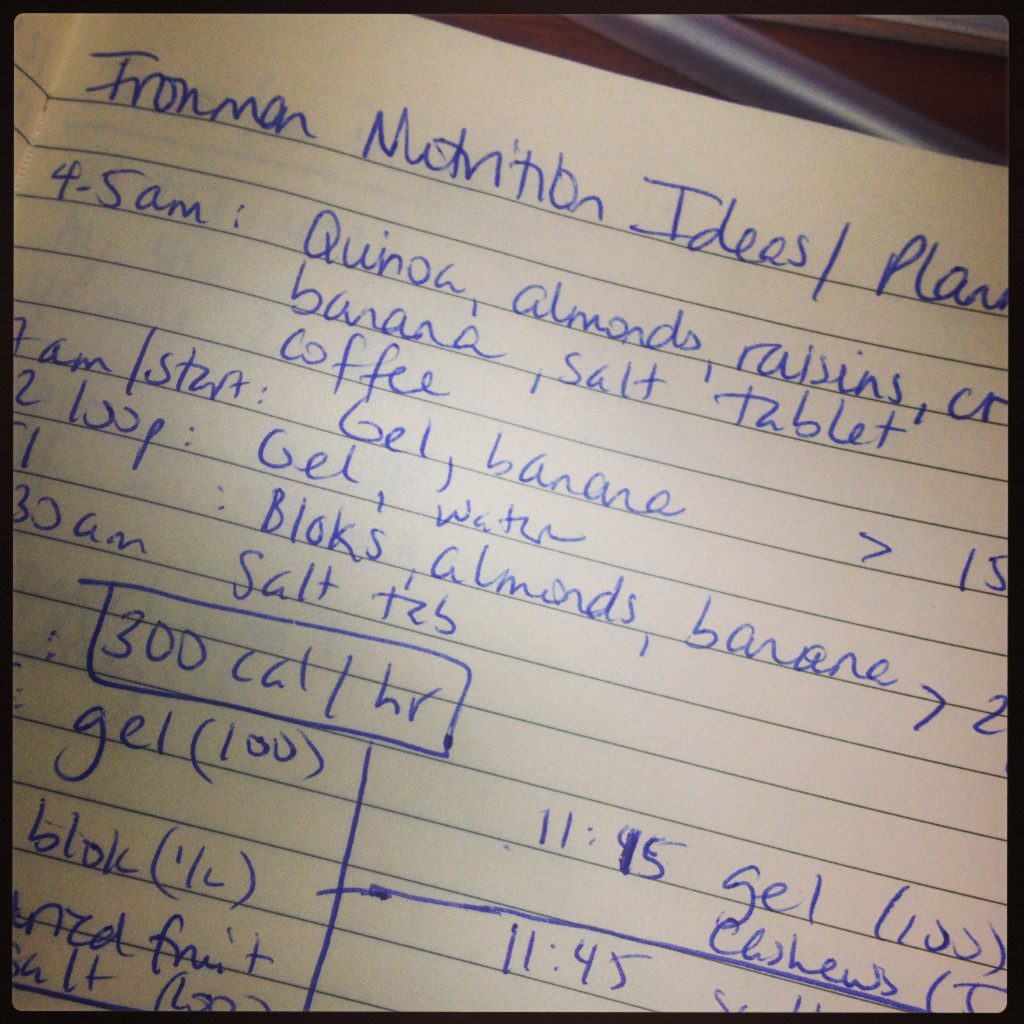 Ironman Nutrition Ideas/ Plan
4-5am: Quinoa, almonds, raisins, cr
banana, salt tablet
coffee
7am/start: Gel, banana
2 loop: Gel, water > 15
: Bloks, almonds, banana > 2
30am Salt tab
: 300 cal/hr
gel (100)
11:45 gel (100)
blok (1/2)
Cashews (
11:45
fruit
Salt